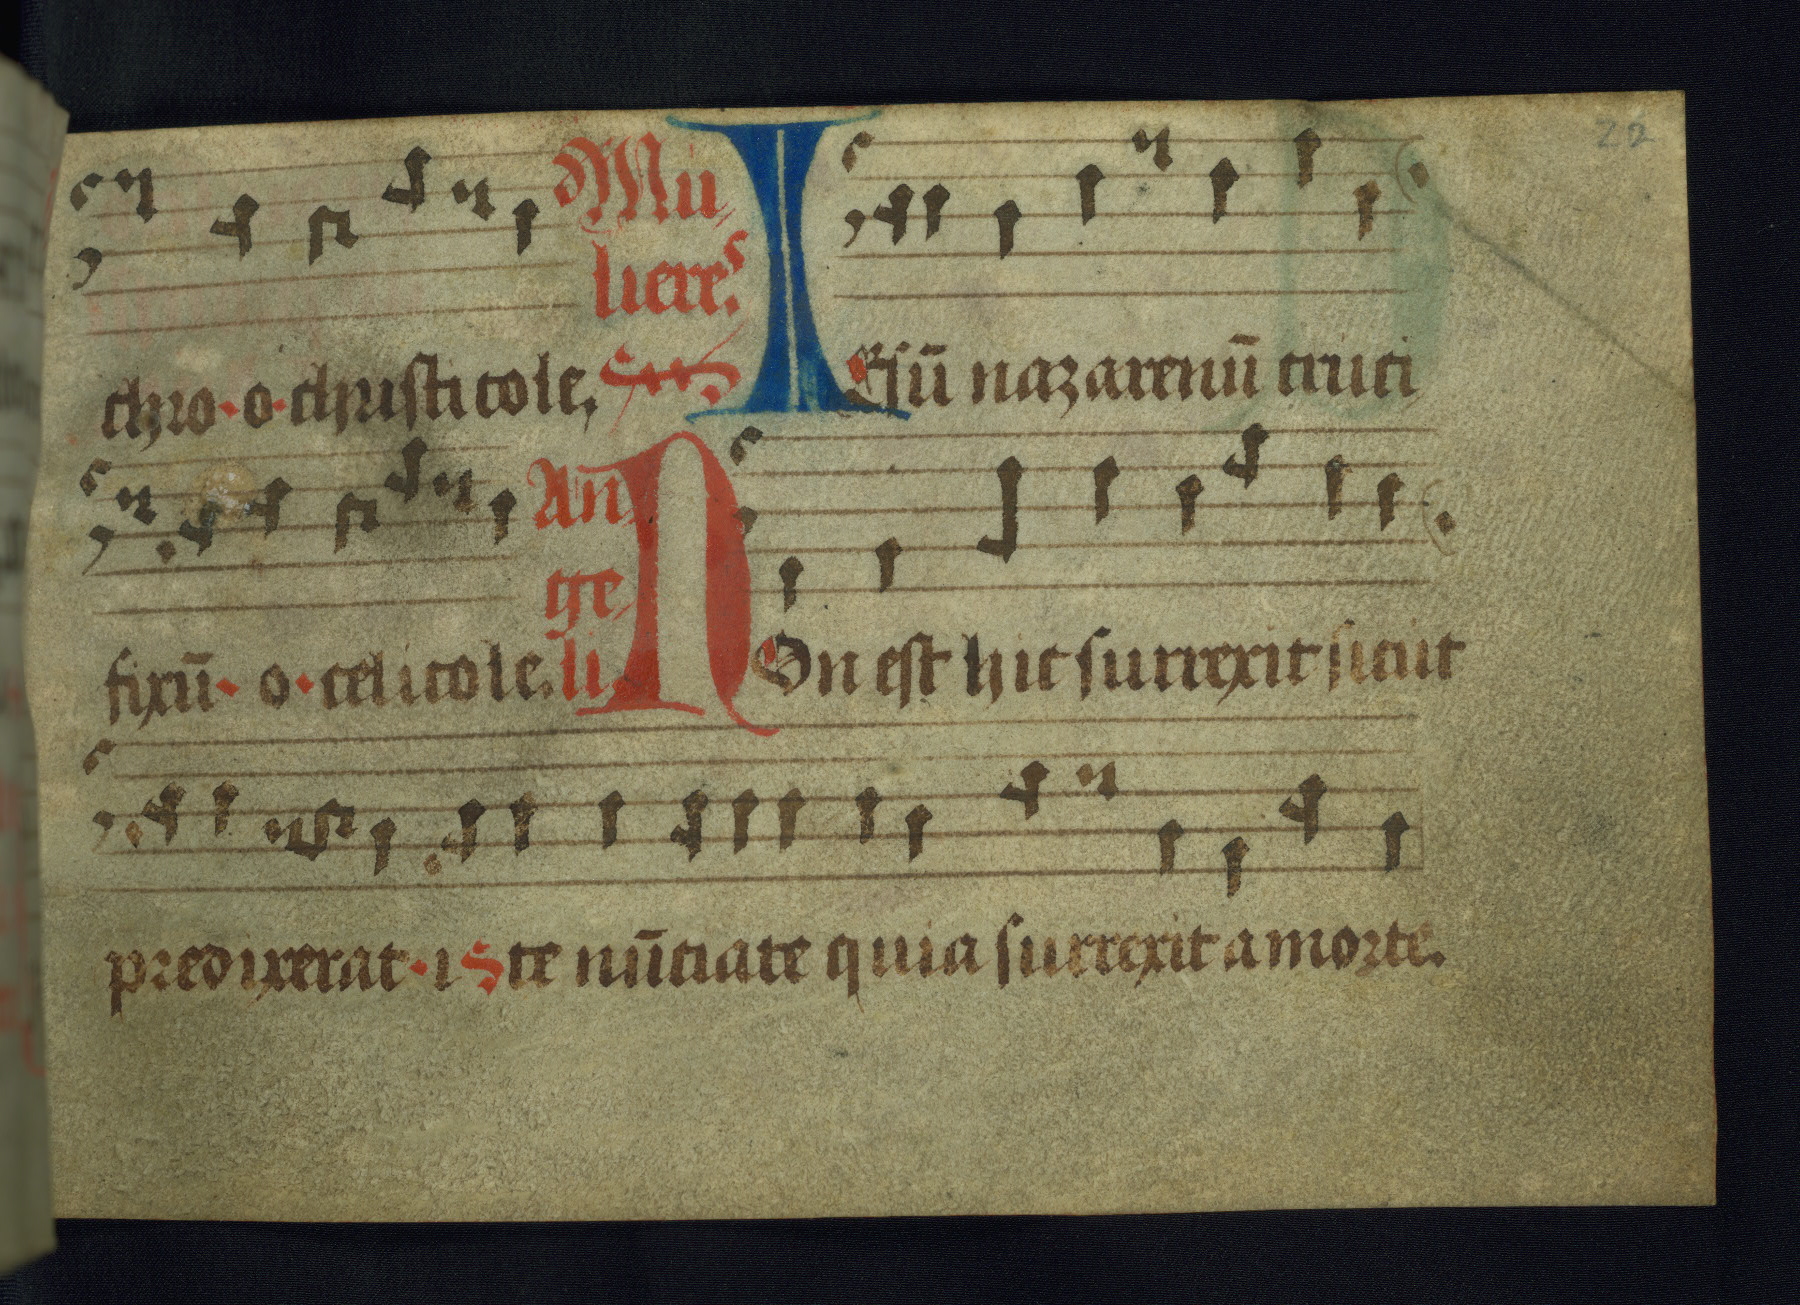 22
Mu
lieres.
chro · o · christicole, IEsū nazarenū cruci
An
ge
fixū · o · celicole. li NOn est hic surrexit sicut
predixerat · iSte nūciate quia surrexit a morte.